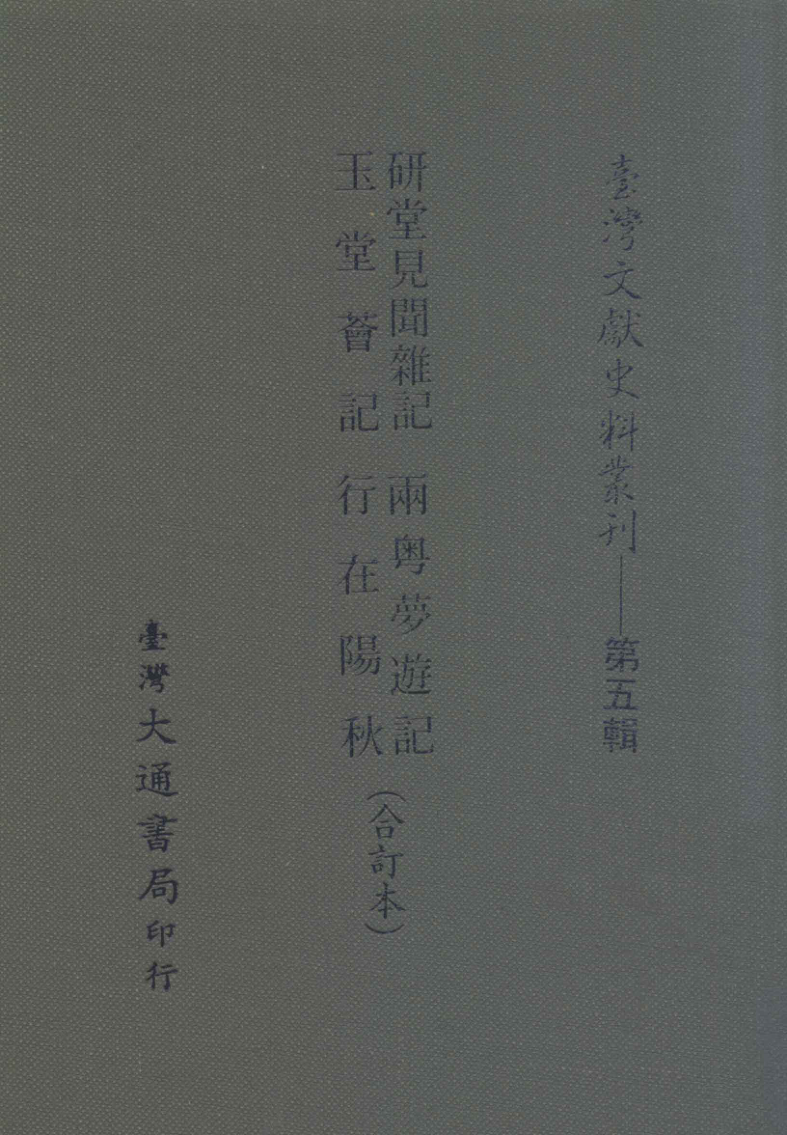 臺灣文獻史料叢刊——第五輯
研堂見聞雜記 兩粵夢遊記
玉堂薈記 行在陽秋
(合訂本)
臺灣大通書局印行